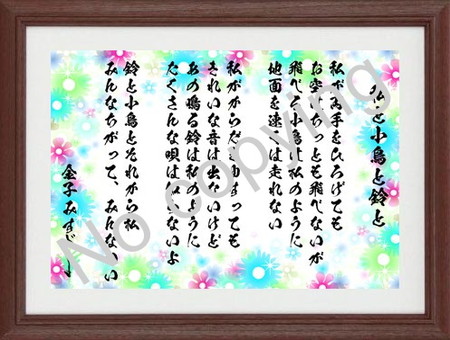 私と小鳥と鈴と
私が両手をひろげても
お空はちっとも飛べないが
飛べる小鳥は私のように
地面を速くは走れない
私がからだをゆすっても
きれいな音は出ないけど
あの鳴る鈴は私のように
たくさんな唄は知らないよ
鈴と小鳥とそれから私
みんなちがって、みんないい
金子みすゞ
No copying